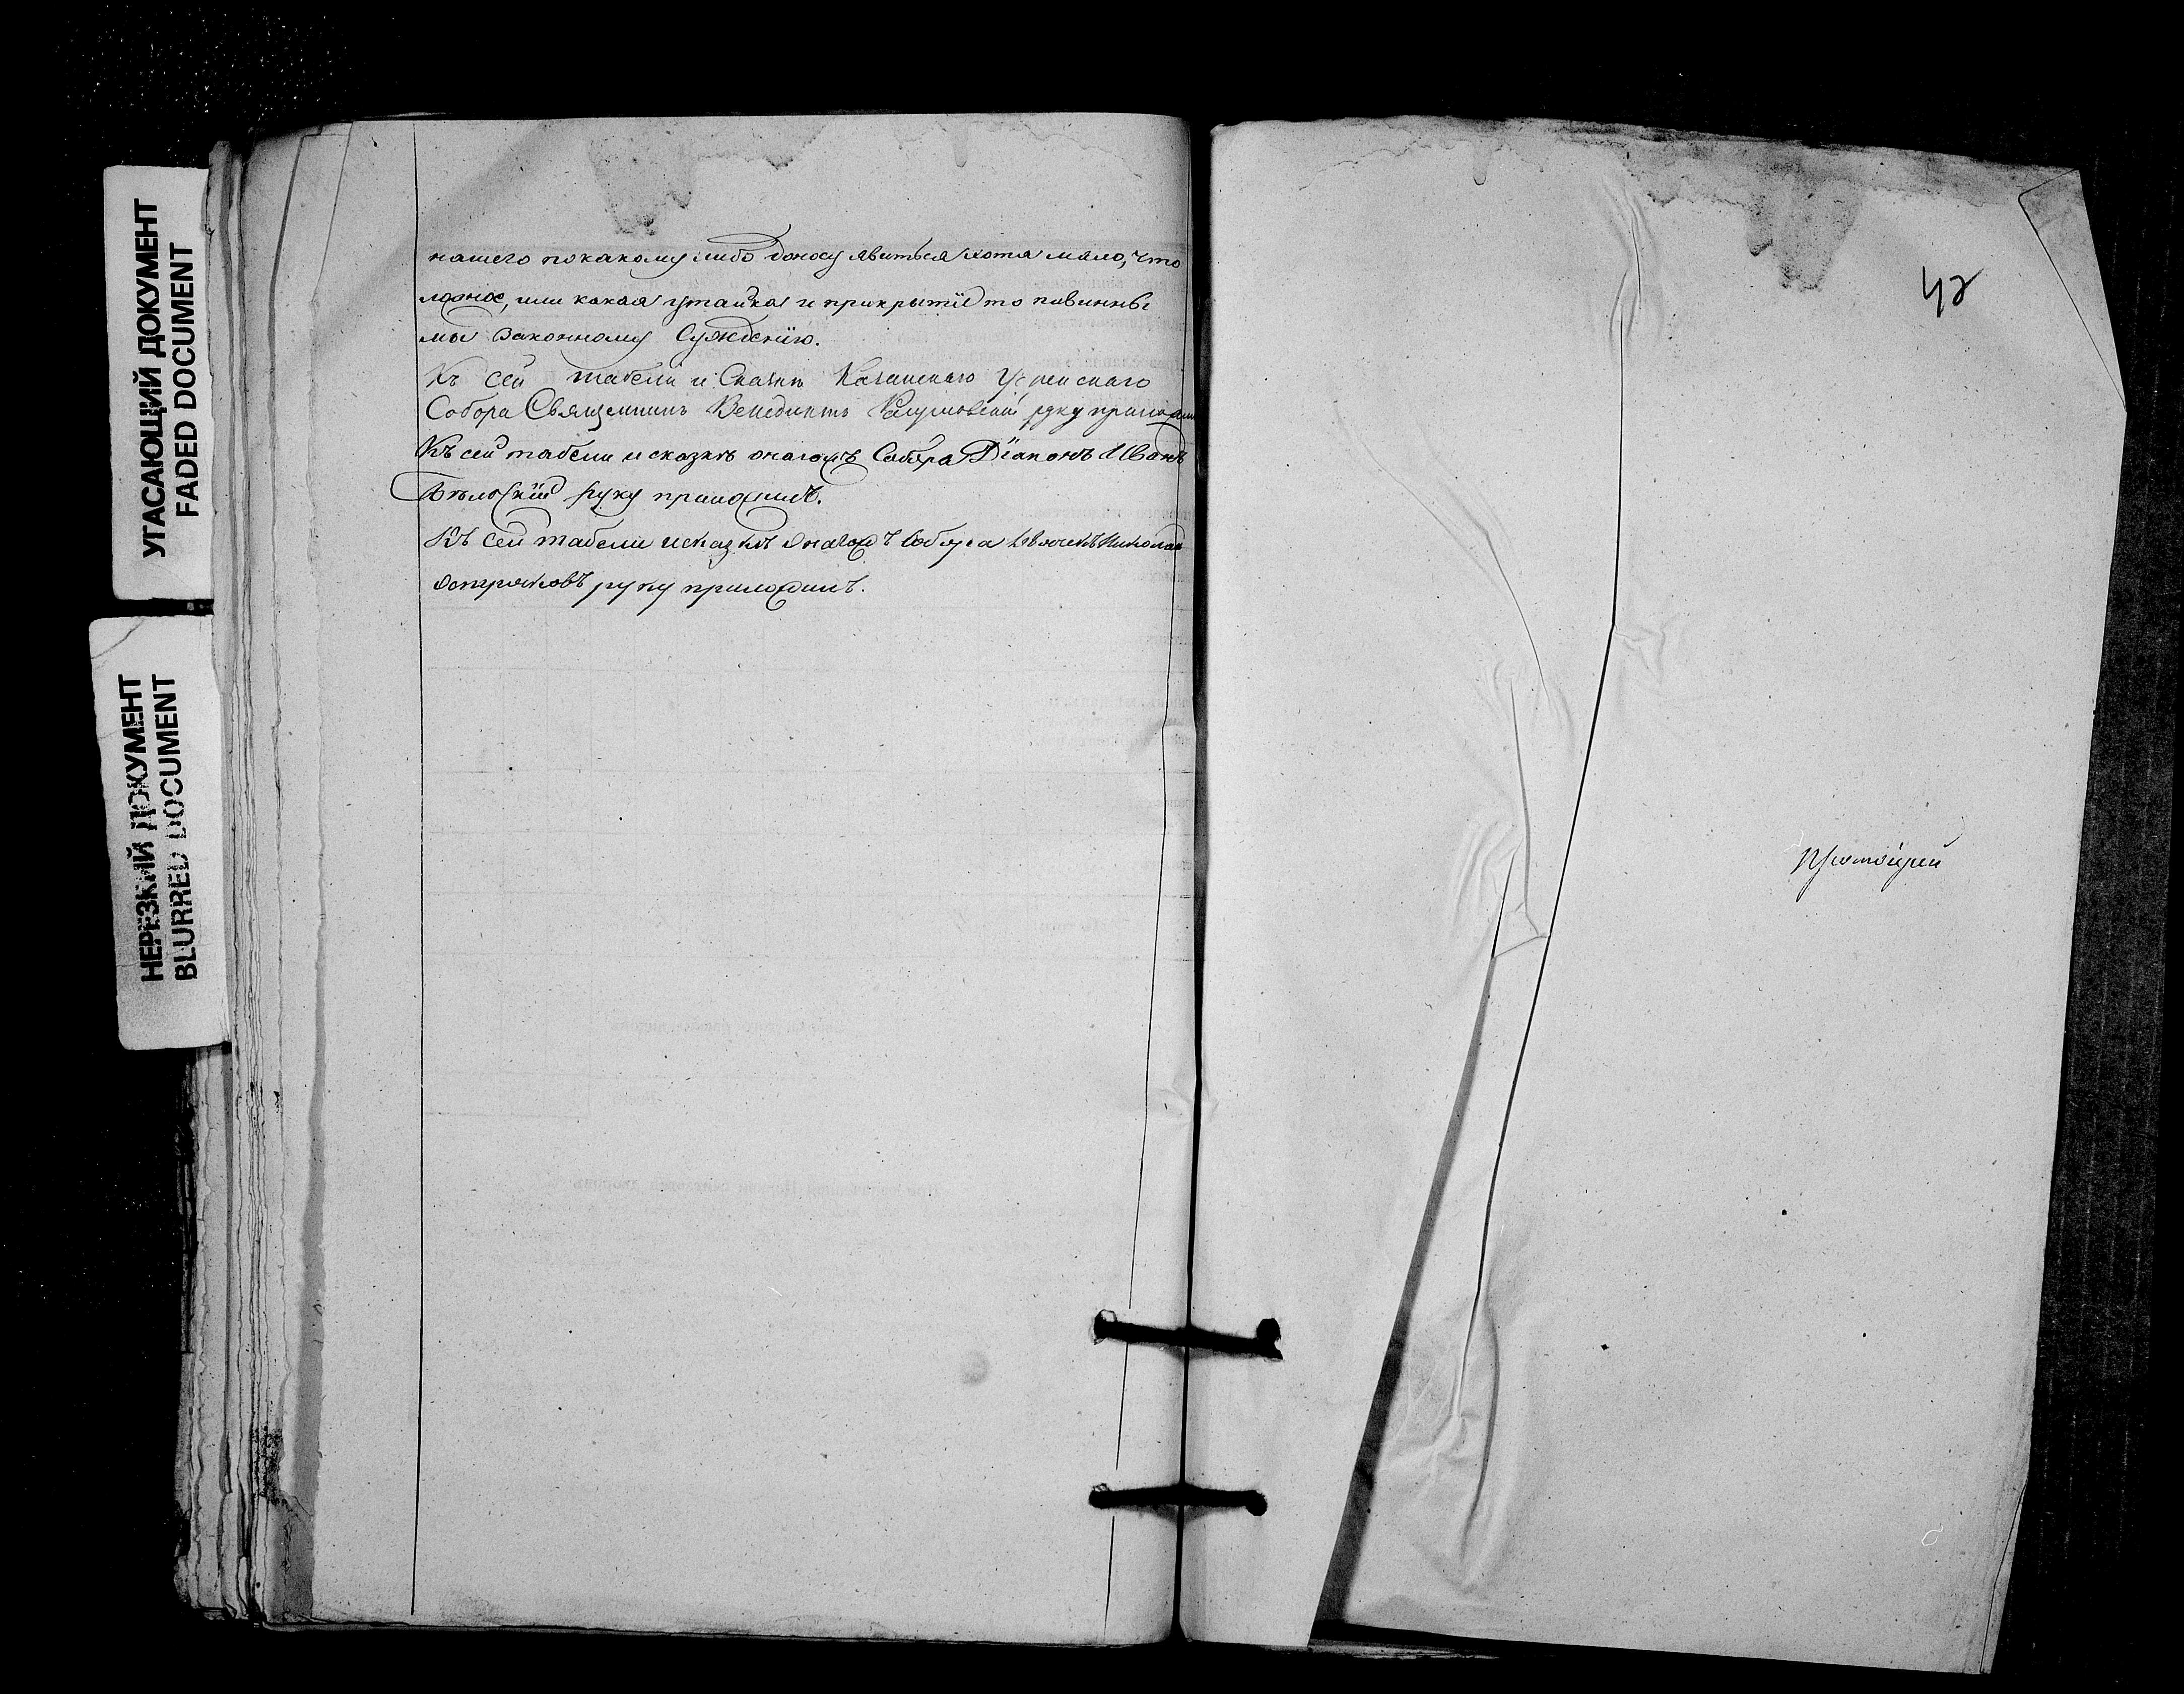 УГАСАЮЩИЙ ДОКУМЕНТ
FADED DOCUMENT
НЕРЕЗКИЙ ДОКУМЕНТ
BLURRED DOCUMENT
нашего покакому либо доносу явиться хотя мало, что
ложное, или какая утайка и прикрытїе то повинны
мы Законному Сужденїю.
Къ сей табели и Сказкѣ Казанскаго Успенскаго
Собора Священникъ Венедиктъ руку приложилъ
Къ сей табели и сказкѣ онагожъ Собора Дїаконъ Иванъ
Бѣльскїй руку приложилъ.
Къ сей табели исказкѣ онагожъ собора дьячекъ Николай
руку приложилъ.
42
Протоїерей